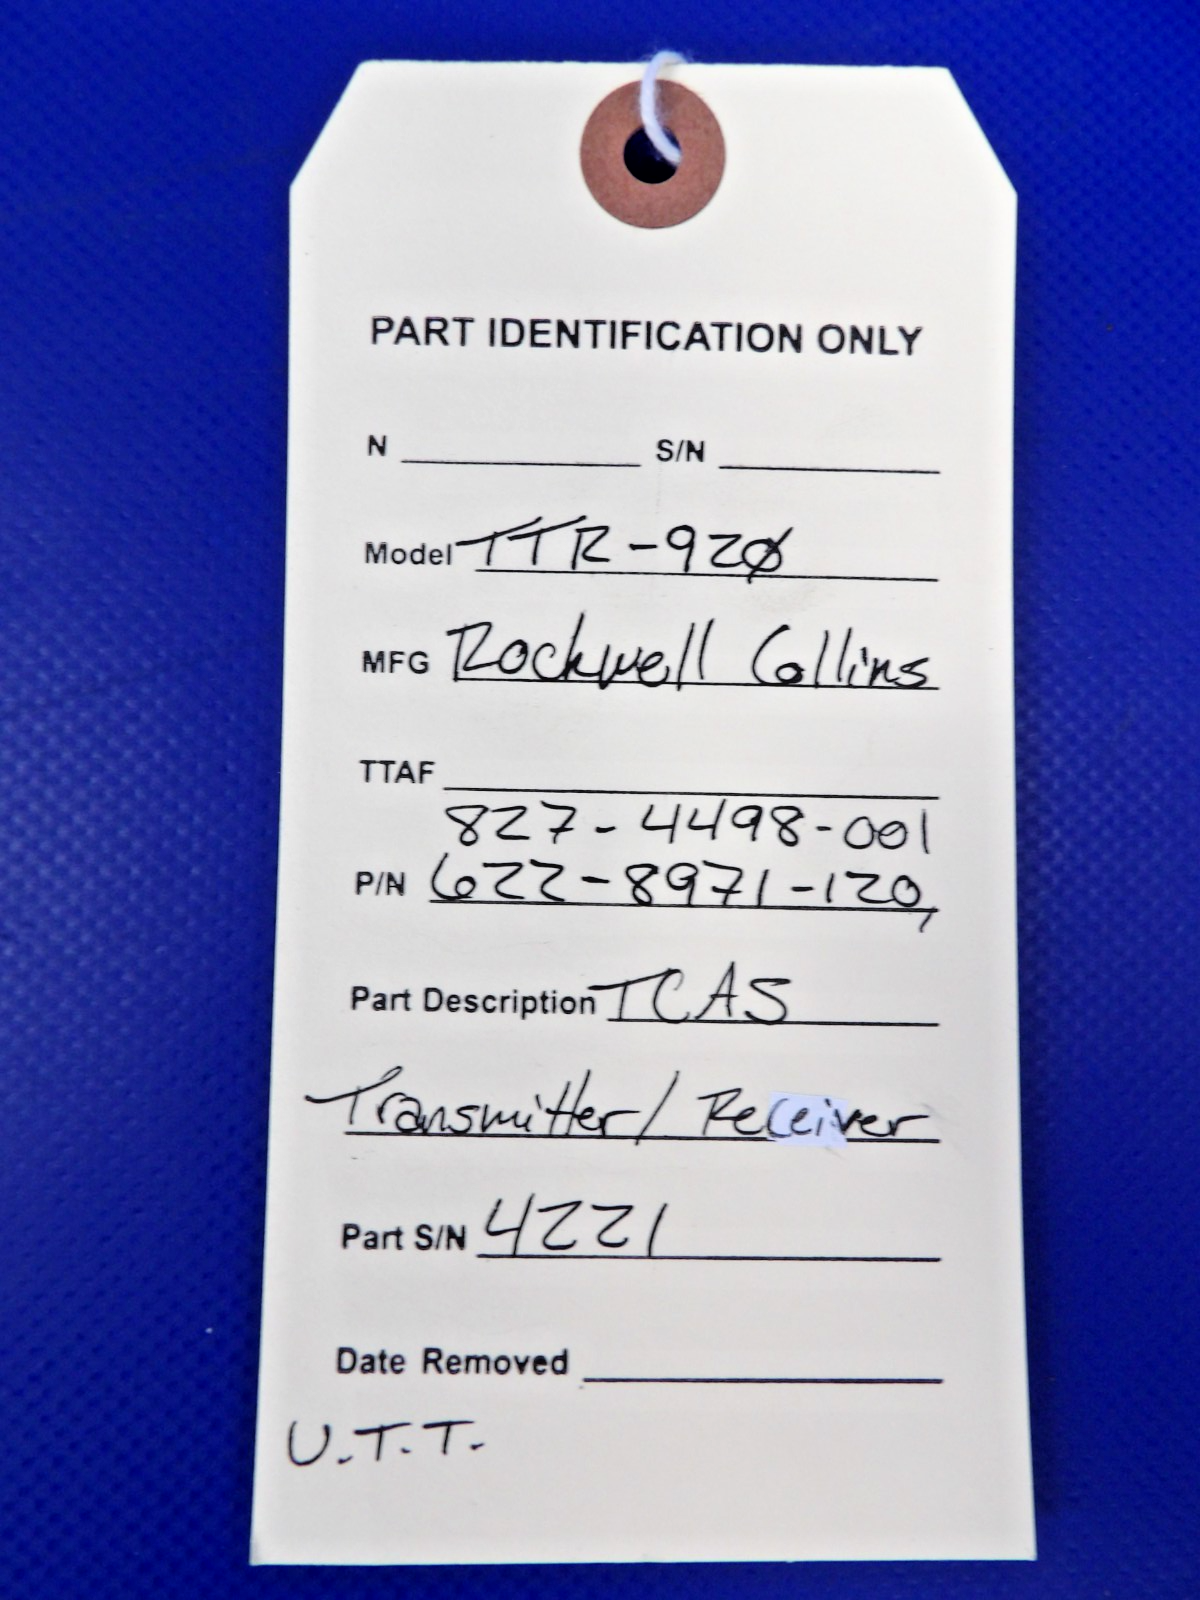 PART IDENTIFICATION ONLY
N S/N
Model TTR-920
MFG Rockwell Collins
TTAF
827-4498-001
P/N 622-8971-120,
Part Description TCAS
Transmitter/ Receiver
Part S/N 4221
Date Removed
U.T.T.